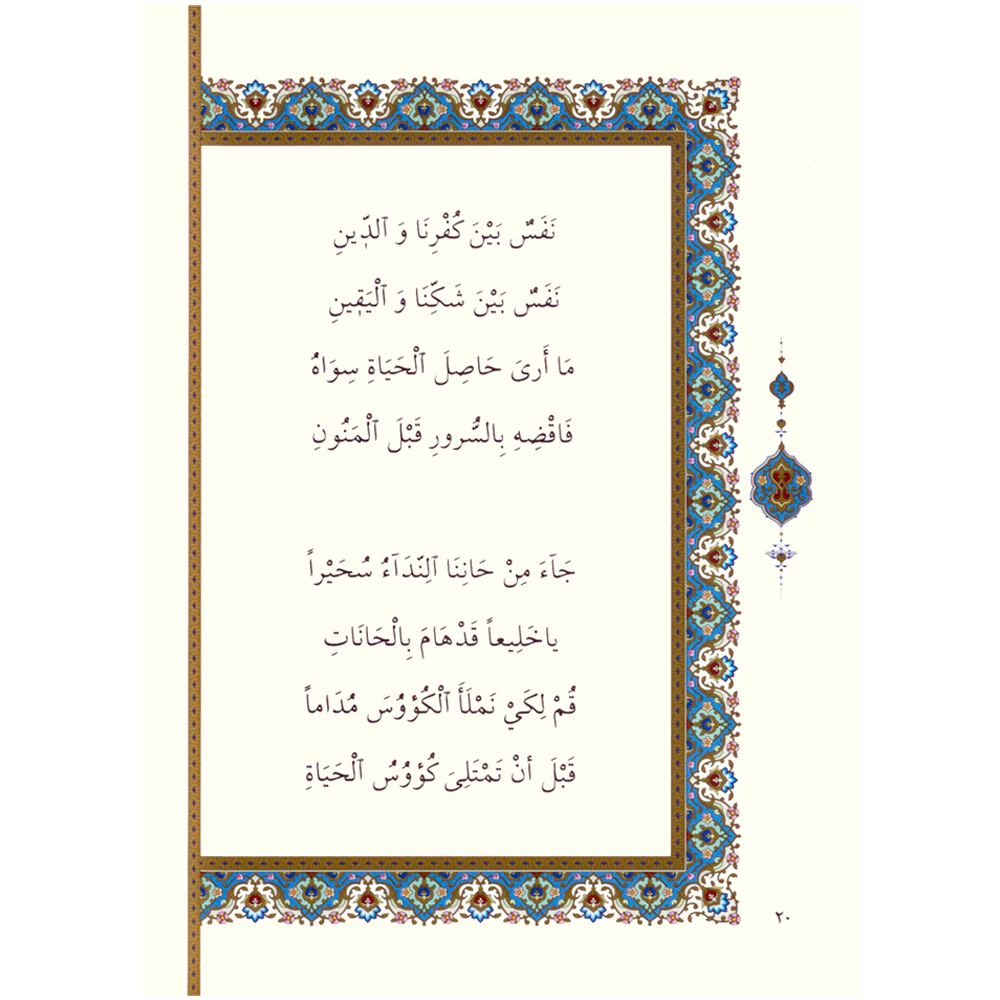 نَفَسٌ بَيْنَ كُفْرِنَا وَ ٱلدّ۪ينِ
نَفَسٌ بَيْنَ شَكِّنَا وَ ٱلْيَق۪ينِ
مَا أَرىَ حَاصِلَ ٱلْحَيَاةِ سِوَاهُ
فَاقْضِهِ بِالسُّرورِ قَبْلَ ٱلْمَنُونِ
جَآءَ مِنْ حَانِنَا ٱلِنّدَآءُ سُحَيْراً
ياخَلِيعاً قَدْهَامَ بِالْحَانَاتِ
قُمْ لِكَيْ نَمْلَأَ ٱلْكُؤوُسَ مُدَاماً
قَبْلَ أنْ تَمْتَلِىَ كُؤوُسُ ٱلْحَيَاةِ
٢٠